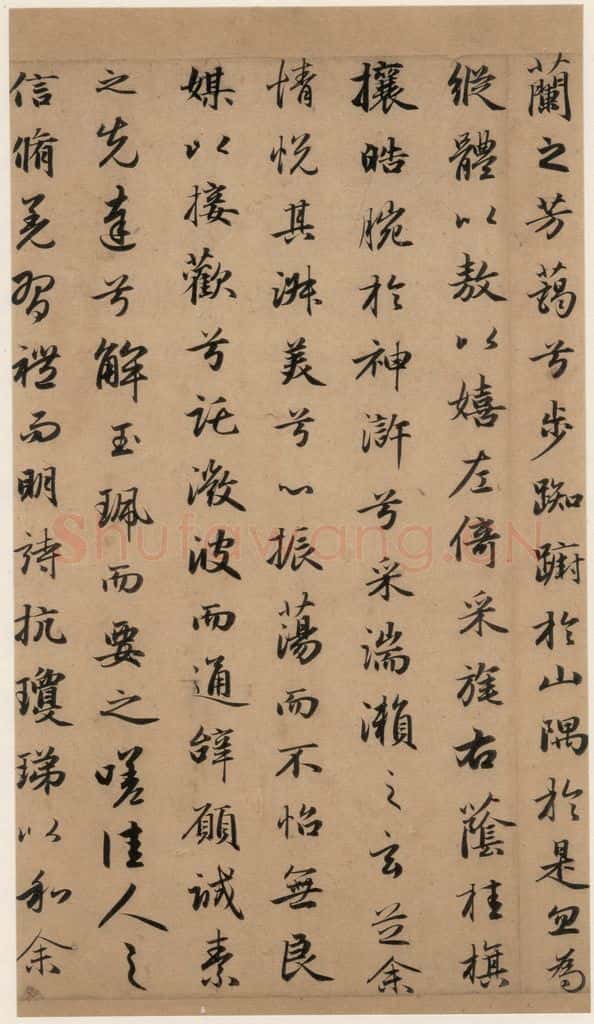 蘭之芳藹兮步踟蹰於山隅於是忽為
縱體以敖以嬉左倚采旄右蔭桂旗
攘皓腕於神滸兮采湍瀨之玄芝余
情悅其淑美兮心振蕩而不怡無良
媒以接歡兮託微波而通辭願誠素
之先達兮解玉珮而要之嗟佳人之
信脩羌習禮而明詩抗瓊珶以和余
Shufawang.CN